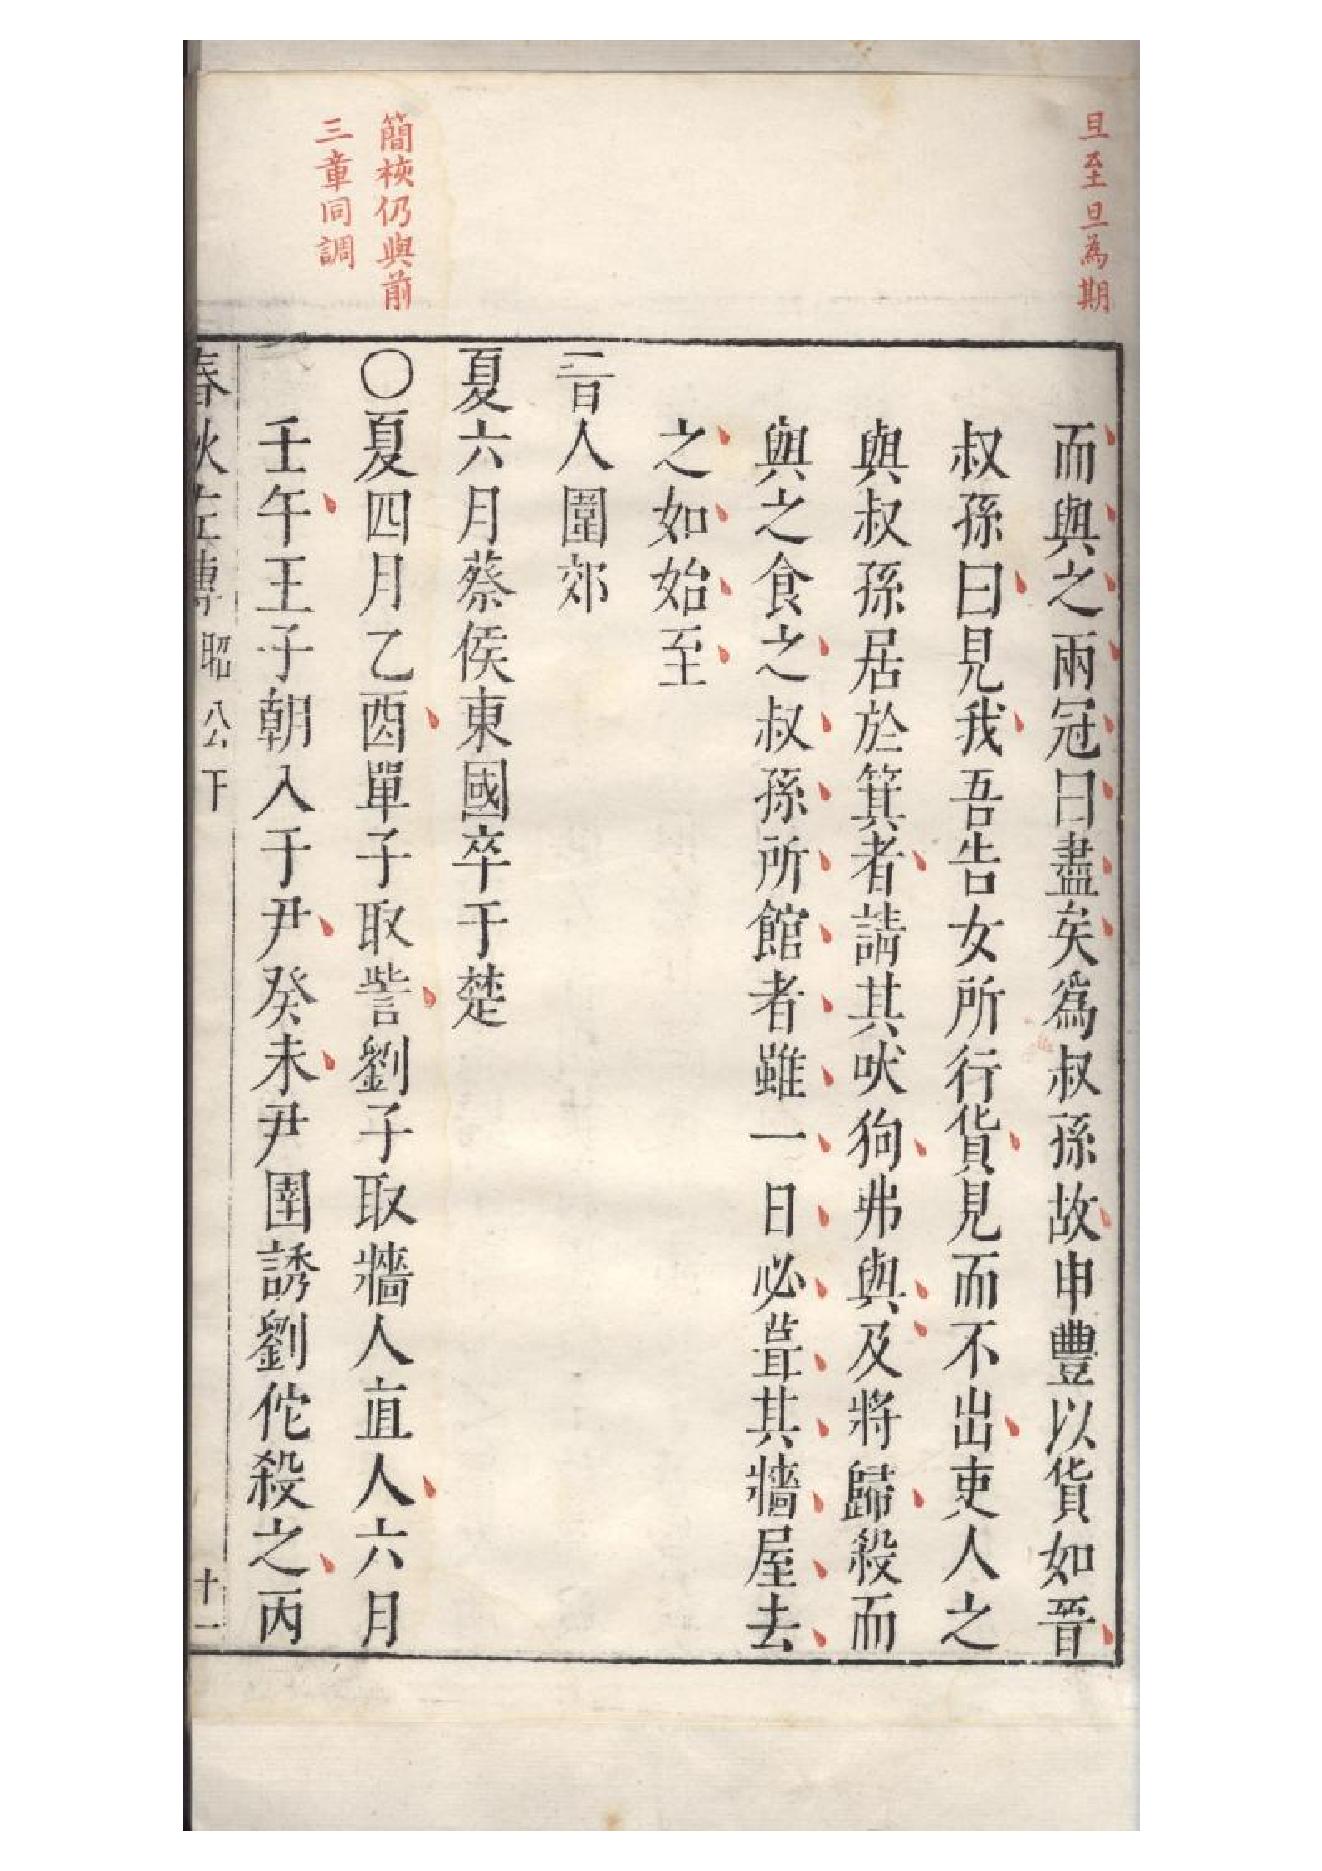 旦至旦為期
簡棙仍與前
三章同調
而與之兩冠曰盡矣爲叔孫故申豐以貨如晉
叔孫曰見我吾告女所行貨見而不出吏人之
與叔孫居於箕者請其吠狗弗與及將歸殺而
與之食之叔孫所館者雖一日必葺其牆屋去
之如始至
晉人圍郊
夏六月蔡侯東國卒于楚
〇夏四月乙酉單子取訾劉子取牆人直人六月
壬午王子朝入于尹癸未尹圉誘劉佗殺之丙
春秋左傳 昭公下 十一